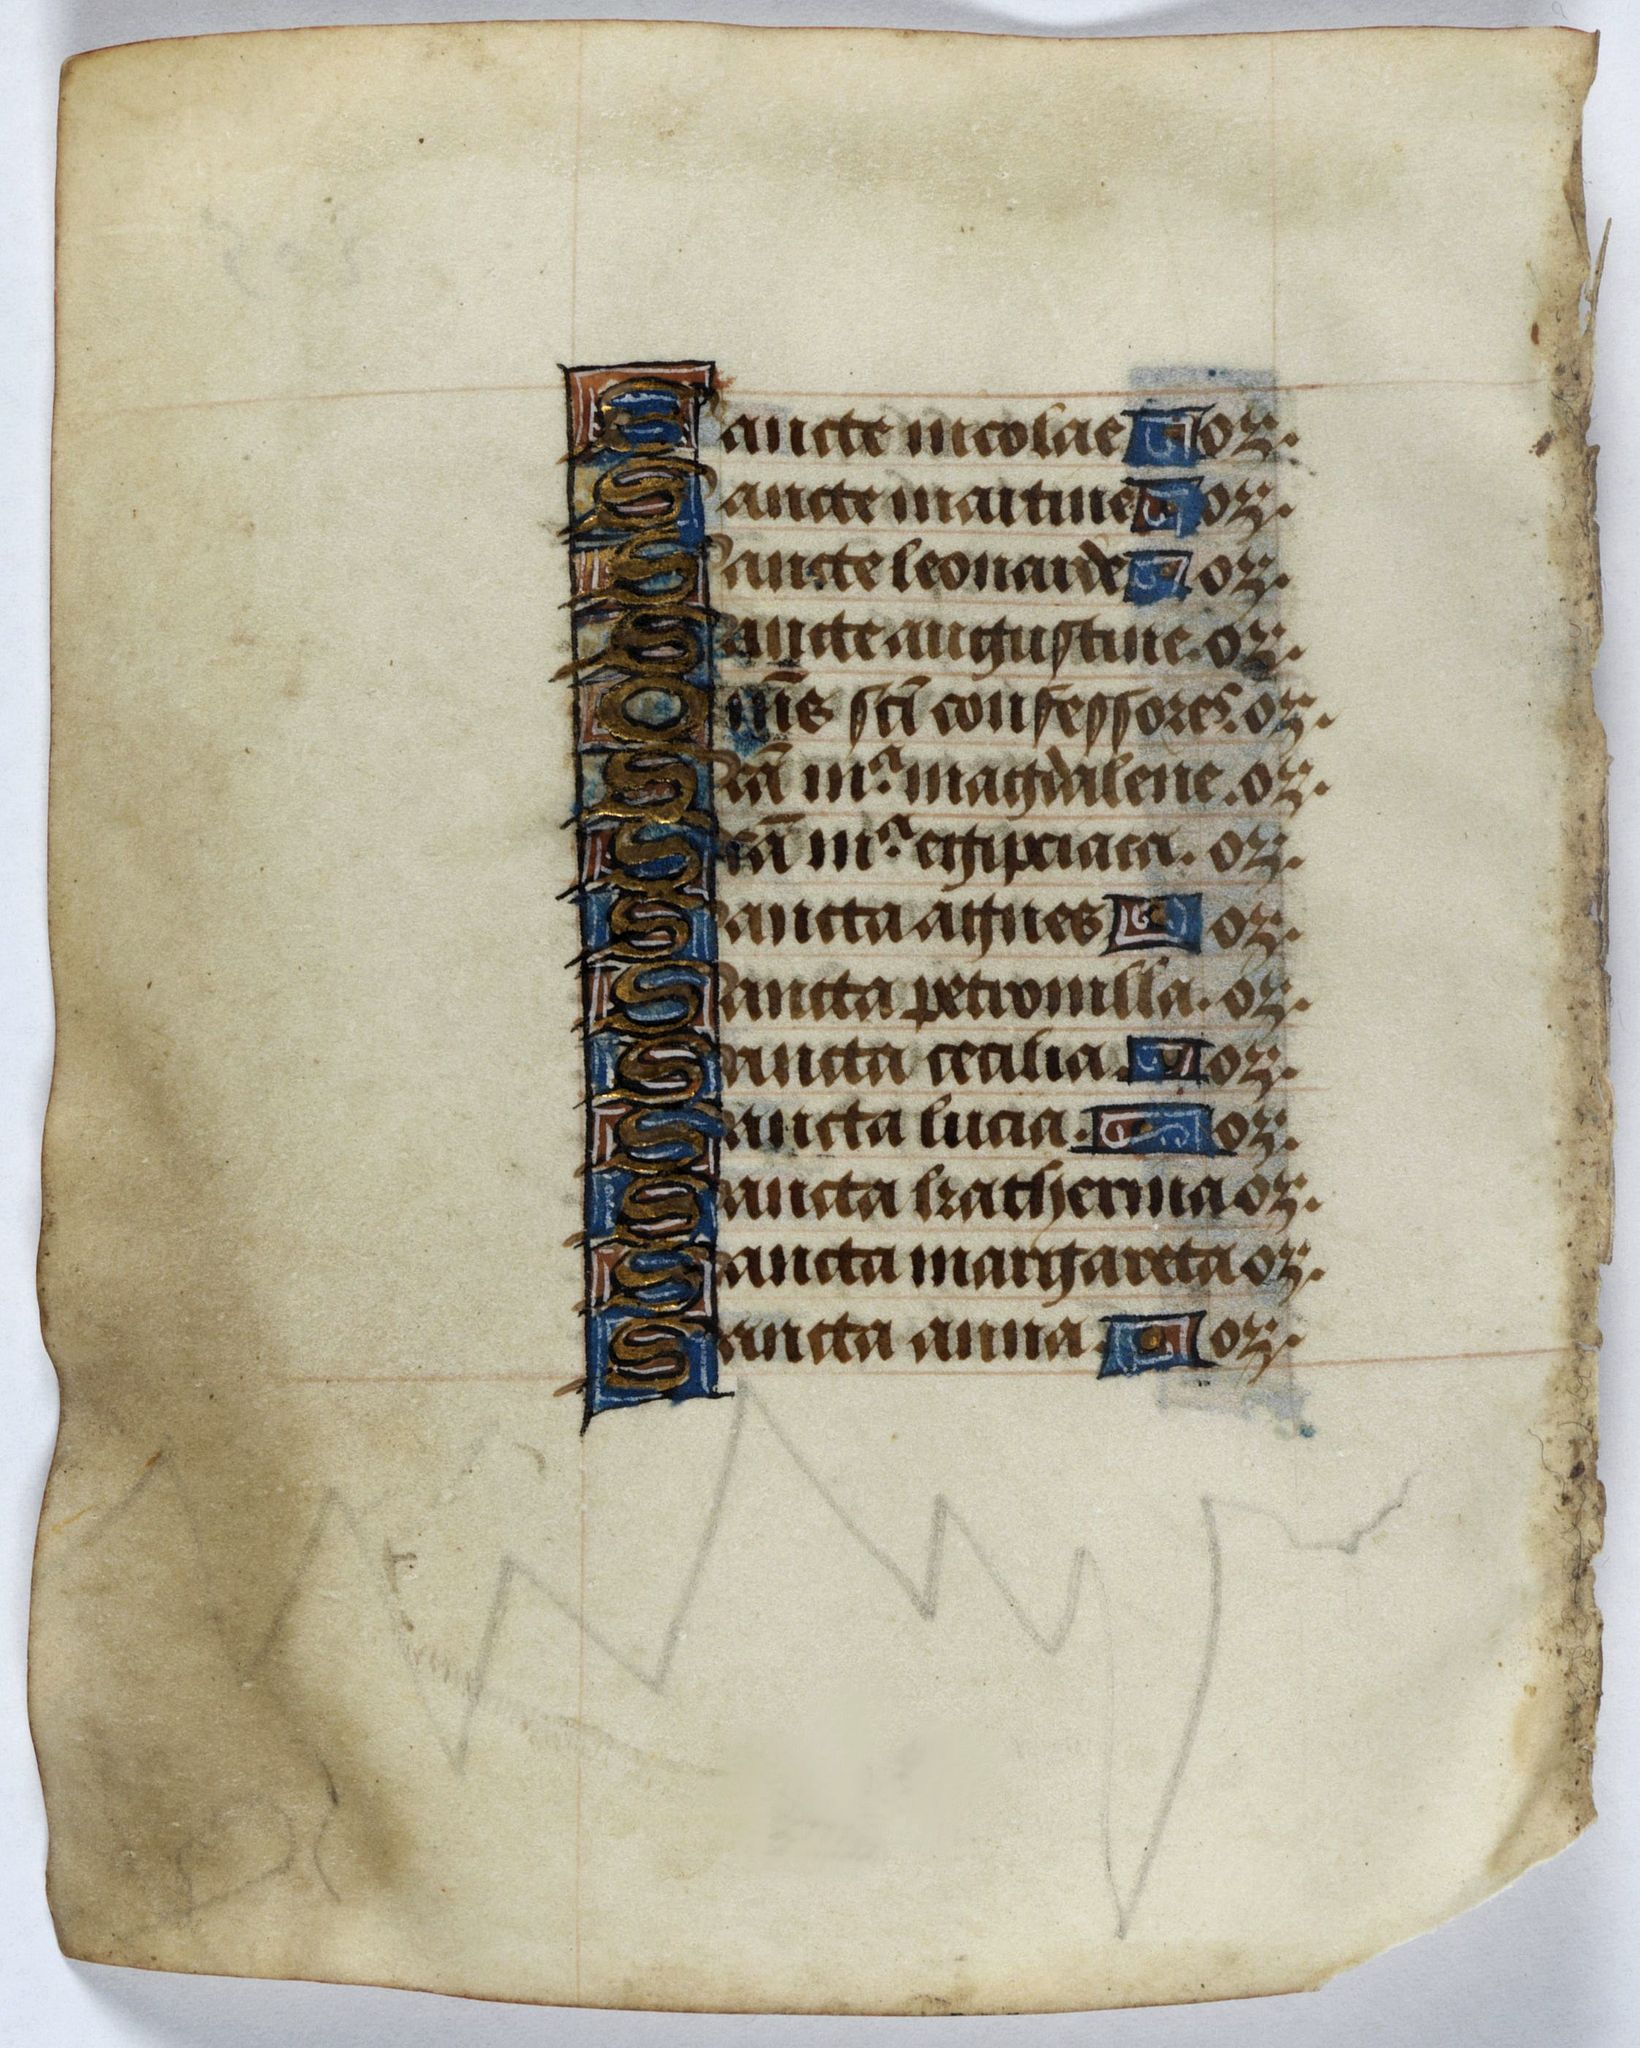 Sancte nicolae oꝝ.
Sancte martine oꝝ.
Sancte leonarde oꝝ.
Sancte augustine. oꝝ.
Om̄s sc̄i confessores. oꝝ.
Sc̄a mᵃ. magdalene. oꝝ.
Sc̄a mᵃ. egipciaca. oꝝ.
Sancta agnes oꝝ.
Sancta petronilla. oꝝ.
Sancta cecilia. oꝝ.
Sancta lucia. oꝝ.
Sancta katherina oꝝ.
Sancta margareta oꝝ.
Sancta anna. oꝝ.